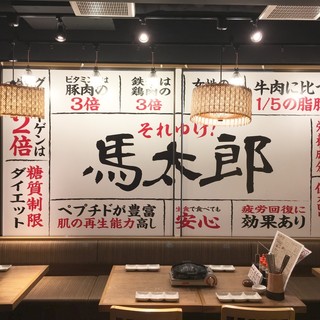 ビタミン
豚肉の
3倍
鉄
は
鶏肉の
3倍
女性の
牛肉に比
1/5の脂肪
ーゲンは
2倍
糖質制限
ダイエット
それゆけ!
馬太郎
ペプチドが豊富
肌の再生能力高し
食べても
安心
疲労回復に
効果あり